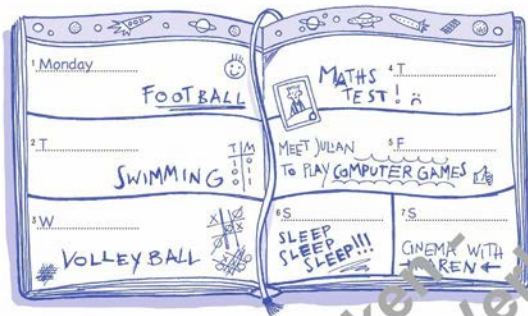 1 Monday
FOOTBALL
2 T
SWIMMING
T M
1 0
0 1
0 1
3 W
VOLLEYBALL
MATHS
TEST!
4 T
MEET JULIAN
5 F
TO PLAY COMPUTER GAMES
6 S
SLEEP
SLEEP
SLEEP!!!
7 S
CINEMA WITH